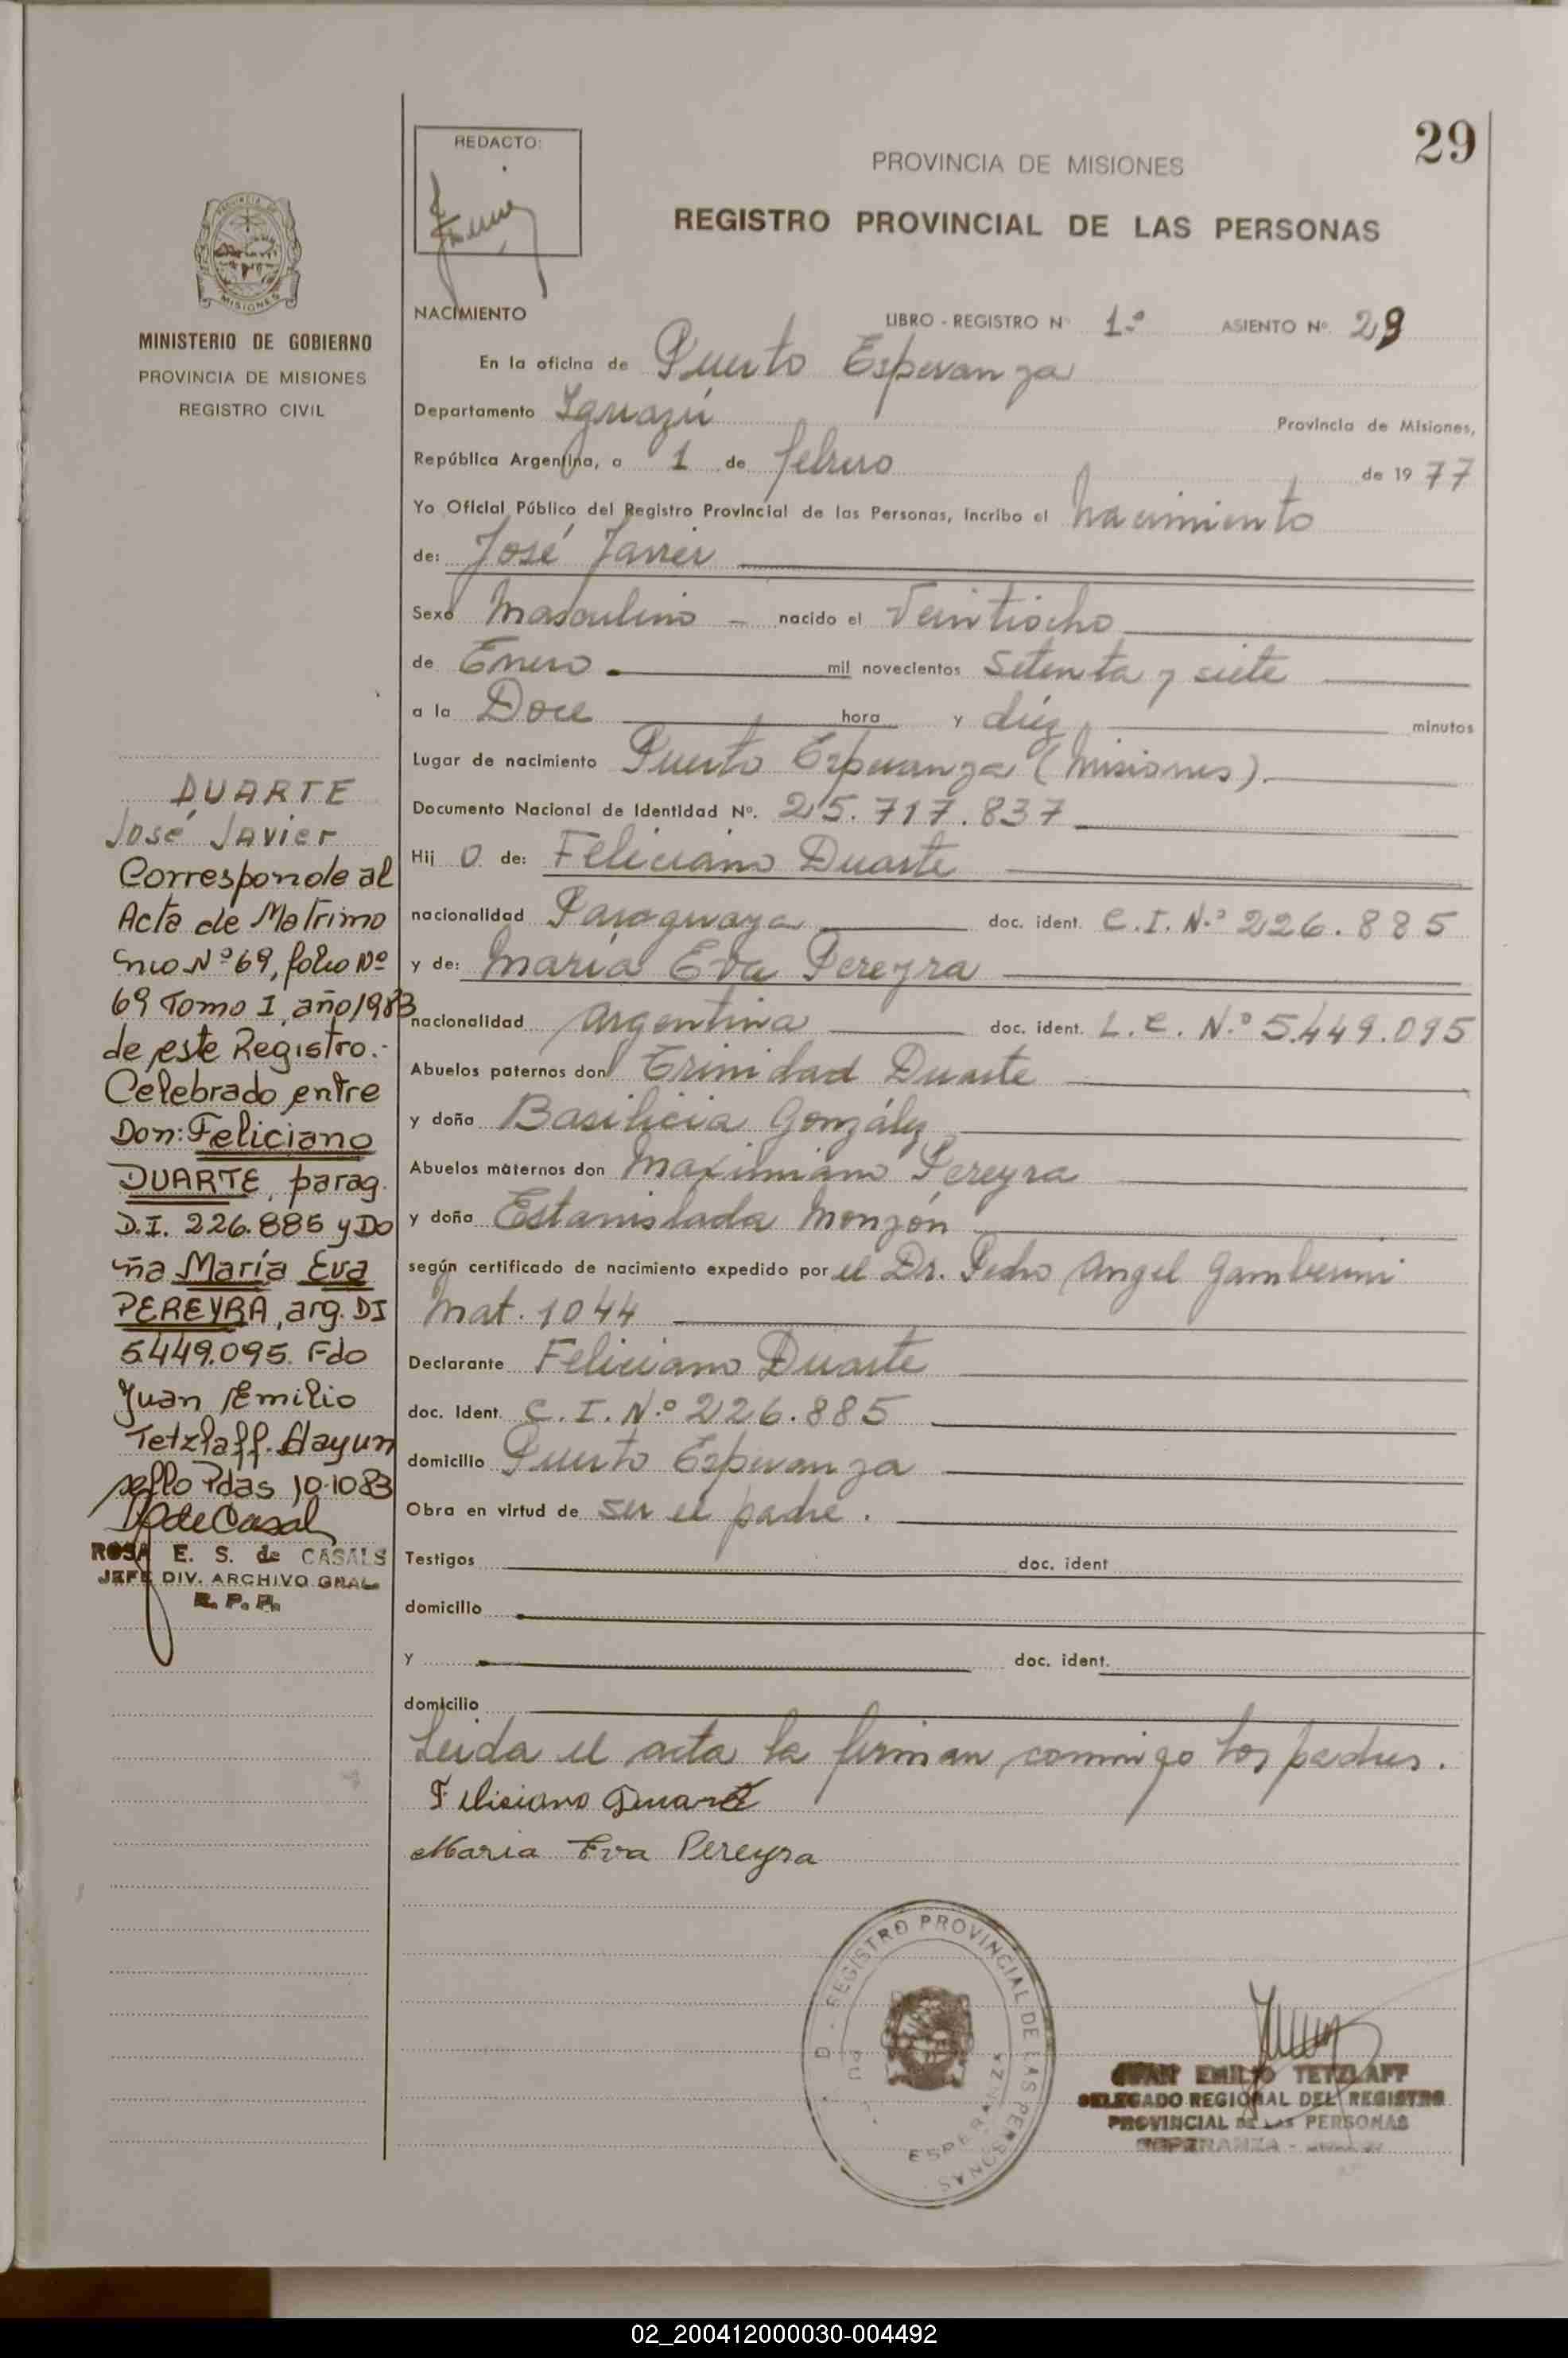 29
REDACTO:
PROVINCIA DE MISIONES
REGISTRO PROVINCIAL DE LAS PERSONAS
MISIONES
MINISTERIO DE GOBIERNO
PROVINCIA DE MISIONES
REGISTRO CIVIL
DUARTE
José Javier
Corresponde al
Acta de Matrimo
nio Nº 69, folio Nº
69 Tomo I, año 1983
de este Registro.-
Celebrado entre
Don: Feliciano
DUARTE, parag.
D.I. 226.885 y Do
ña María Eva
PEREYRA, arg. DI
5.449.095. Fdo
Juan Emilio
Tetzlaff. Hayun
sello Pdas 10-10-83
ROSA E. S. de CASALS
JEFE DIV. ARCHIVO GRAL.
R. P. P.
NACIMIENTO LIBRO - REGISTRO Nº 1.º ASIENTO Nº. 29
En la oficina de Puerto Esperanza
Departamento Iguazú Provincia de Misiones,
República Argentina, a 1 de febrero de 1977
Yo Oficial Público del Registro Provincial de las Personas, incribo el Nacimiento
de: José Javier
Sexo Masculino - nacido el Veintiocho
de Enero. mil novecientos setenta y siete
a la Doce hora y diéz minutos
Lugar de nacimiento Puerto Esperanza (Misiones).
Documento Nacional de Identidad Nº. 25.717.837
Hij o de: Feliciano Duarte
nacionalidad Paraguaya doc. ident. C.I. N.º 226.885
y de: María Eva Pereyra
nacionalidad Argentina doc. ident. L.C. N.º 5.449.095
Abuelos paternos don Trinidad Duarte
y doña Basilicia González
Abuelos maternos don Maximiano Pereyra
y doña Estanislada Monzón
según certificado de nacimiento expedido por el Dr. Pedro Angel Gamberini
Mat. 1044
Declarante Feliciano Duarte
doc. Ident. C.I. N.º 226.885
domicilio Puerto Esperanza
Obra en virtud de ser el padre.
Testigos doc. ident
domicilio
y doc. ident.
domicilio
Leida el acta la firman conmigo los padres.
Felisiano Duarte
Maria Eva Pereyra
REGISTRO PROVINCIAL DE LAS PERSONAS
ESPERANZA
JUAN EMILIO TETZLAFF
DELEGADO REGIONAL DEL REGISTRO
PROVINCIAL DE LAS PERSONAS
ESPERANZA -
02_200412000030-004492